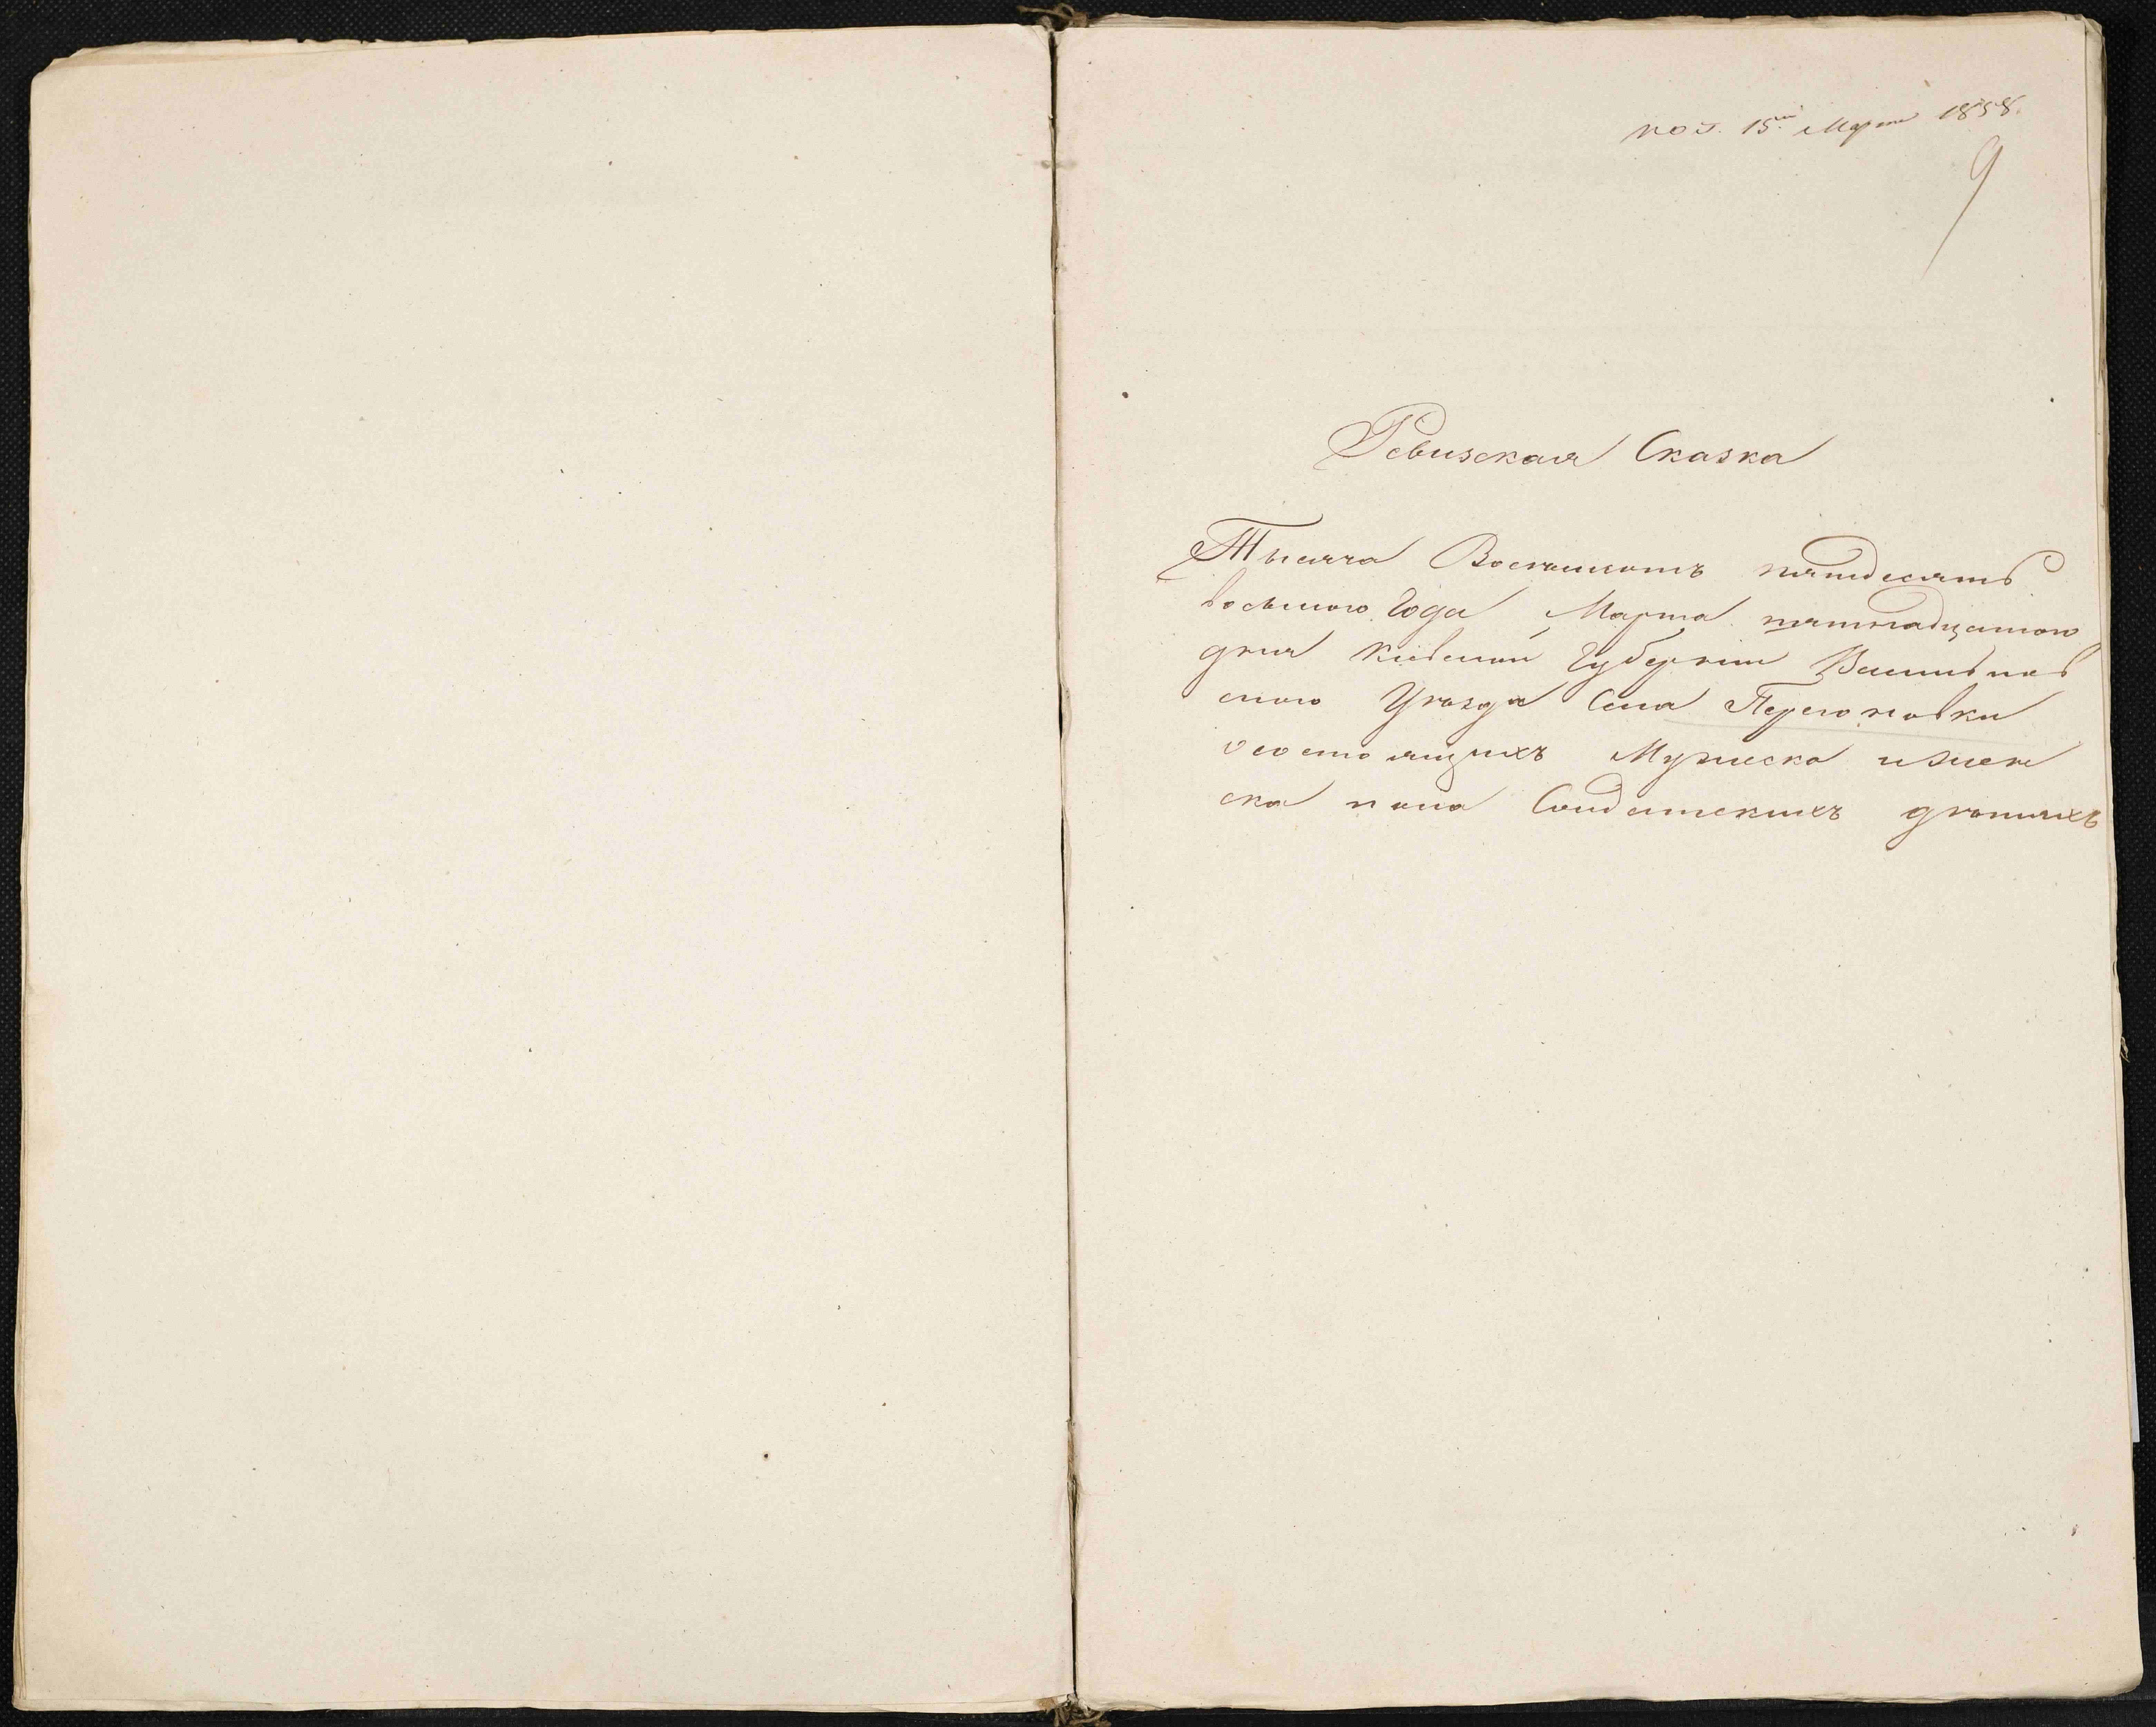 пол. 15го Марта 1858.
9
Ревизская Сказка
Тысяча Восемьсотъ пятдесятъ
восьмого Года Марта пятнадцатого
дня Киевской Губернии Васильков
ского Уезда Села Перегоновки
о состоящихъ Мужеска и женс
ска пола Солдатскихъ детяхъ